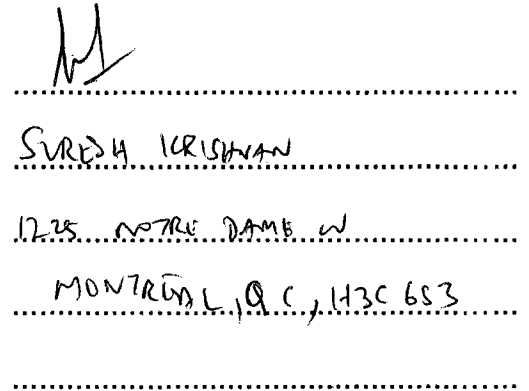 SURESH KRISHNAN
1225 NOTRE DAME W
MONTREAL, QC, H3C 6S3